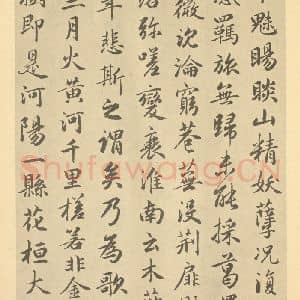 魅睗睒山精妖孽況復
羈旅無歸未能採葛
薇沈淪窮巷蕪沒荊扉
落彌嗟變衰淮南云木葉
年悲斯之謂矣乃為歌
三月火黃河千里槎若非金
樹即是河陽一縣花桓大
Shufawang.CN